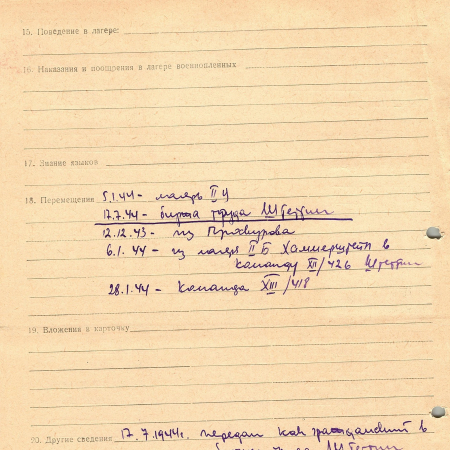 15. Поведение в лагере:
16. Наказания и поощрения в лагере военнопленных
17. Знание языков
18. Перемещения 5.1.44 - лагерь II
17.7.44 - биржа труда Штеттин
12.12.43 - из
6.1.44 - из лагеря II Б Хаммерштейн в
команду XII/426 Штеттин
28.1.44 - команда XIII/418
19. Вложения к карточку
20. Другие сведения 17.7.1944г. передан как гражданский в
Штеттин